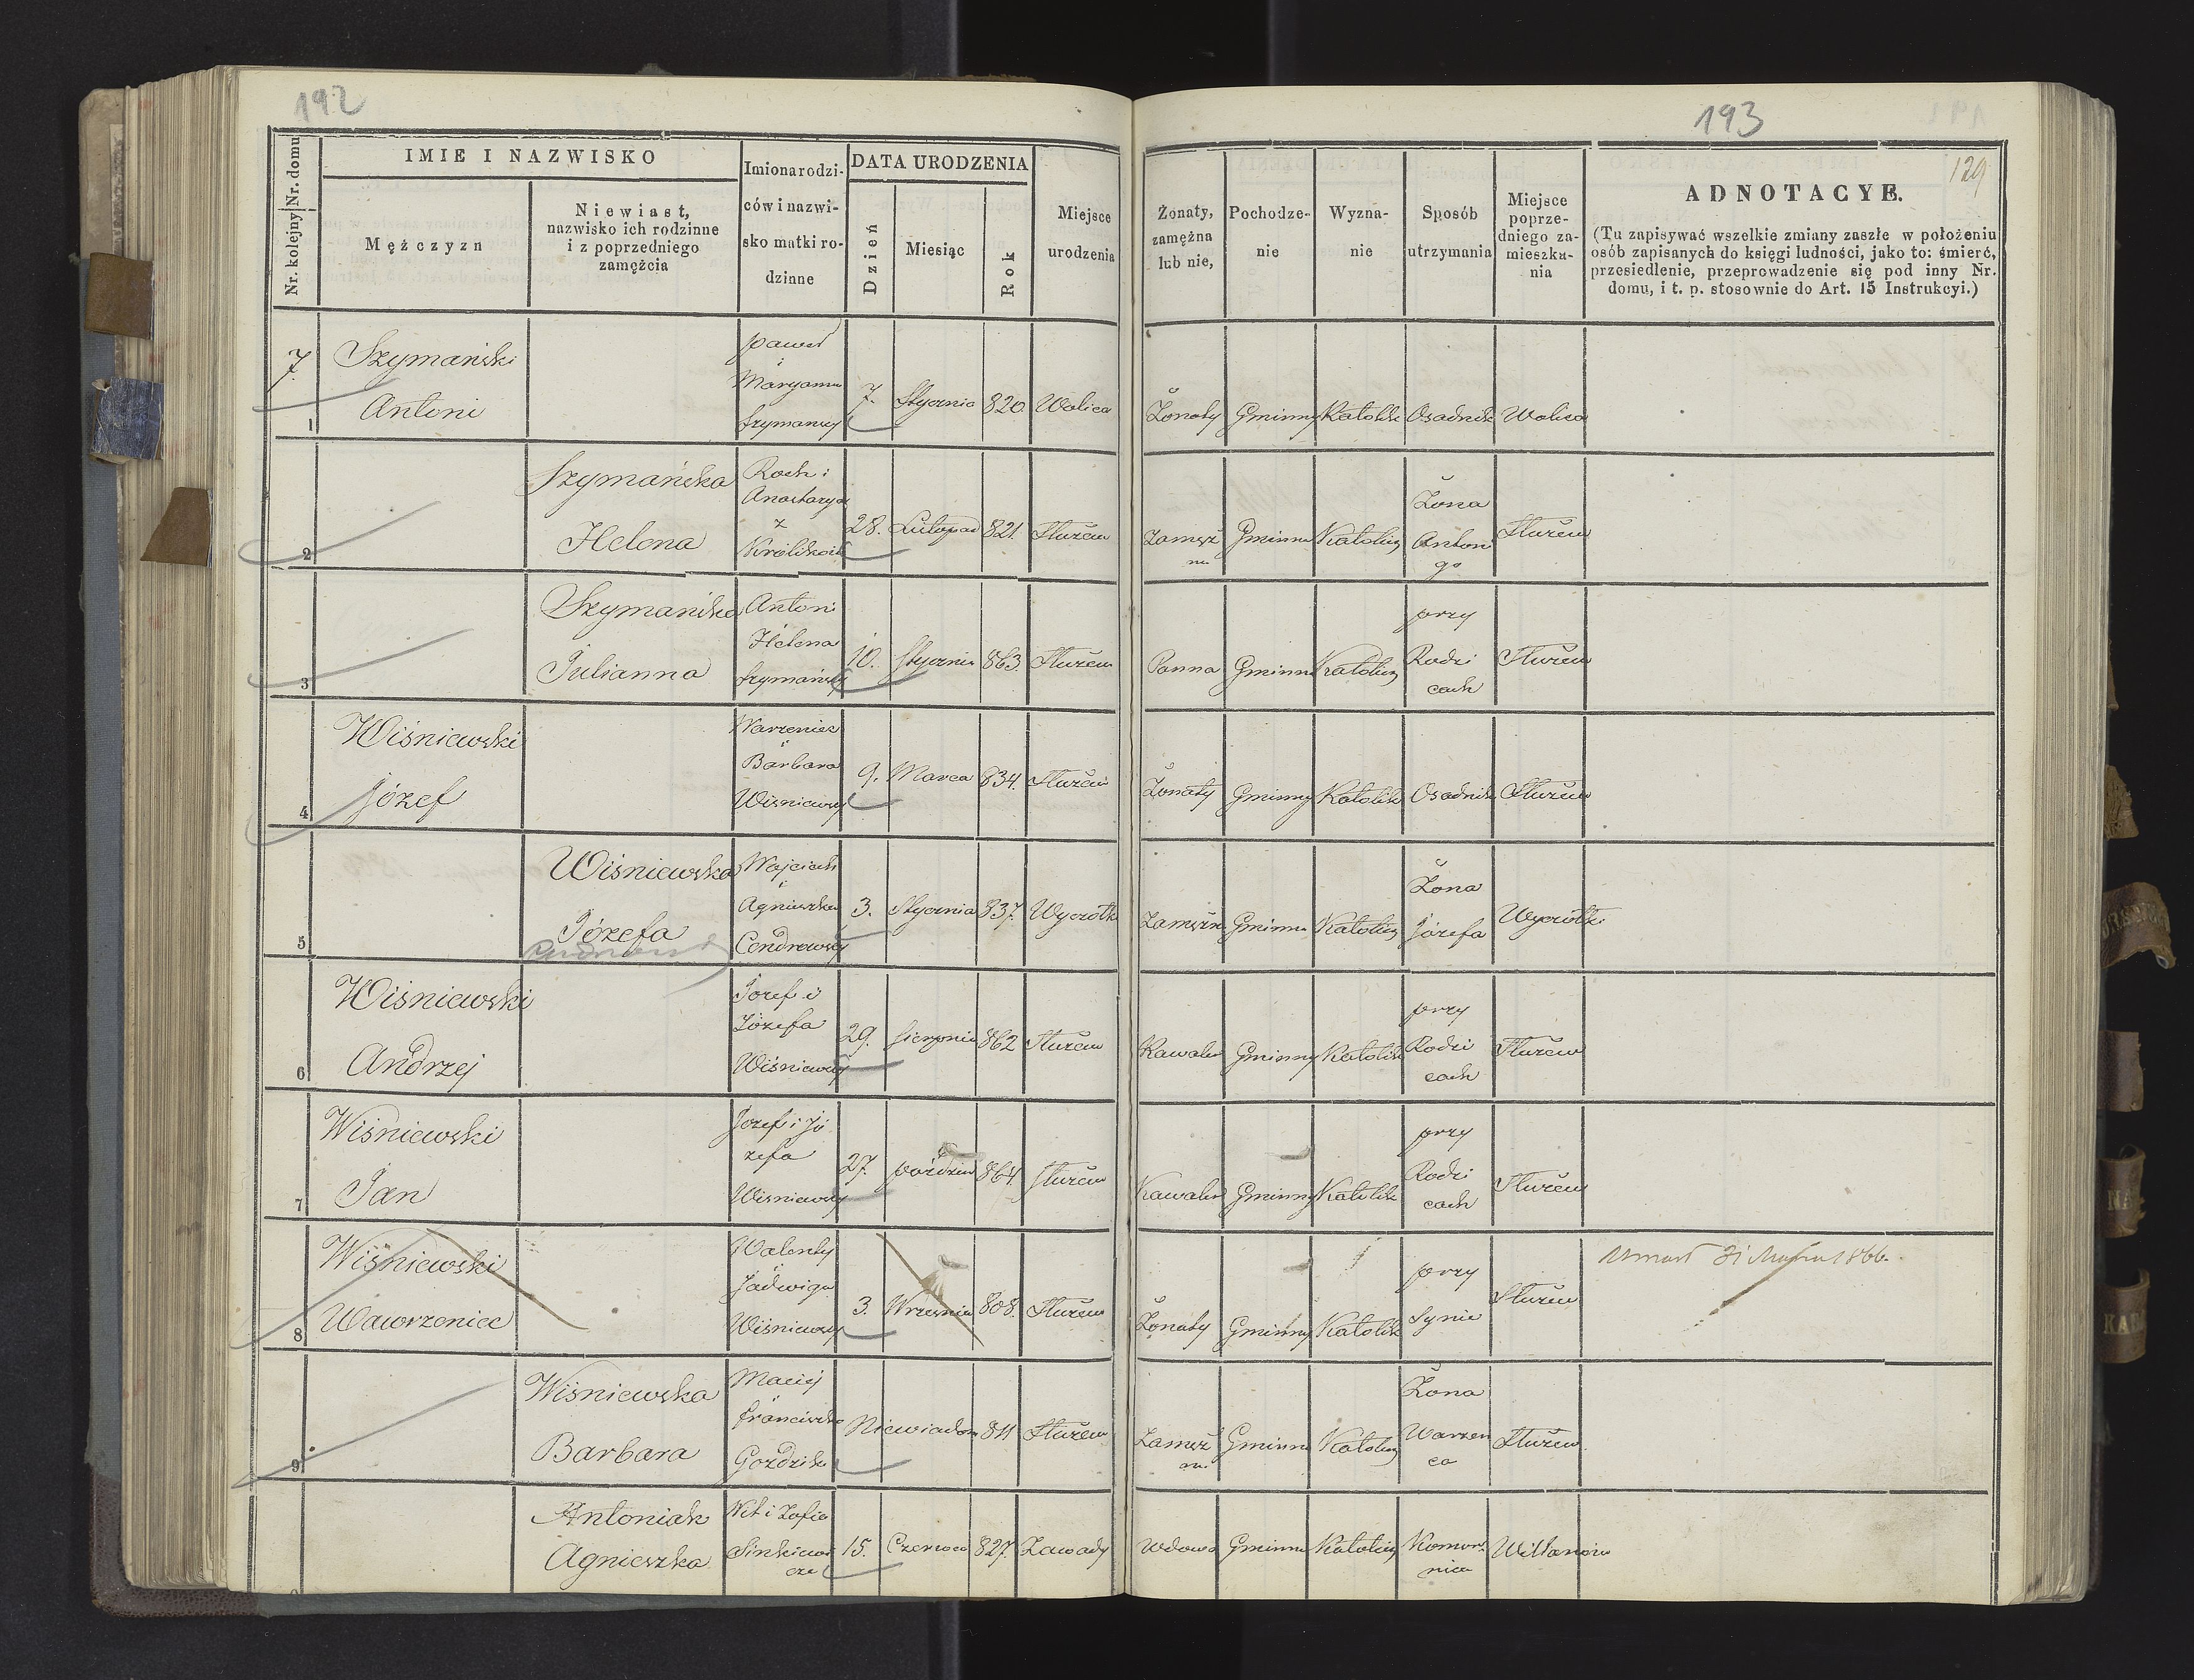 192
193
129
Nr. kolejny Nr. domu
IMIE I NAZWISKO
Mężczyzn
Niewiast,
nazwisko ich rodzinne
i z poprzedniego
zamężcia
Imiona rodzi-
ców i nazwi-
sko matki ro-
dzinne
DATA URODZENIA
Dzień
Miesiąc
Rok
Miejsce
urodzenia
Żonaty,
zamężna
lub nie,
Pochodze-
nie
Wyzna-
nie
Sposób
utrzymania
Miejsce
poprze-
dniego za-
mieszka-
nia
ADNOTACYE.
(Tu zapisywać wszelkie zmiany zaszłe w położeniu
osób zapisanych do księgi ludności, jako to: śmierć,
przesiedlenie, przeprowadzenie się pod inny Nr.
domu, i t. p. stosownie do Art. 15 Instrukcyi.)
7.
1
Szymański
Antoni
paweł
i
Maryanna
Szymańscy
7. Stycznia 820. Wolica
Żonaty Gminny Katolik Osadnik Wolica
2
Szymańska
Helena
Roch i
Anastazya
z
28. Listopad 821. Służew
Zamęż
na
Gminna
Żona
Anton
go
Służew
3
Szymańska
Julianna
Antoni
Helena
Szymańscy
10. Stycznia 863. Służew
Panna Gminna
przy
Rodzi
cach
Służew
4
Wiśniewski
Józef
Barbara
Wiśniewscy
9. Marca 834. Służew
Żonaty Gminny Katolik Osadnik Służew
5
Wiśniewska
Józefa
Wojciech
i
Agnieszka
3. Stycznia 837.
Gminna
Żona
Józefa
6
Wiśniewski
Andrzej
Józef i
Józefa
Wiśniewscy
29. Sierpnia 862 Służew
Kawaler Gminny Katolik
przy
Rodzi
cach
Służew
7
Wiśniewski
Jan
Józef i Jó
zefa
Wiśniewscy
27. paździer 864. Służew
Kawaler Gminny Katolik
przy
Rodzi
cach
Służew
8
Wiśniewski
Wawrzeniec
Walenty
i
Jadwiga
Wiśniewscy
3. Września 808. Służew
Żonaty Gminny Katolik
przy
Synie
Służew
Umarł 31 1866.
9
Wiśniewska
Barbara
Maciej
i
Franciszka
Niewiadom 811 Służew
Zamęż
na
Gminna
Żona
Wawrzeń
ca
Służew
Antoniak
Agnieszka
Wit i Zofia
15. Czerwca 827. Zawady
Wdowa Gminna
Komor
nica
Willanów